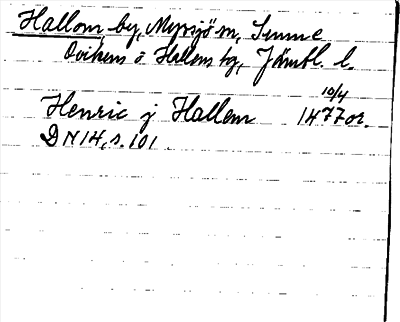 Hallom, by, Myssjö sn, Sunne
Ovikens o Hallens tg, Jämtl. l.
10/4
Henric j Hallem 1477 or.
DN 14, s. 101.